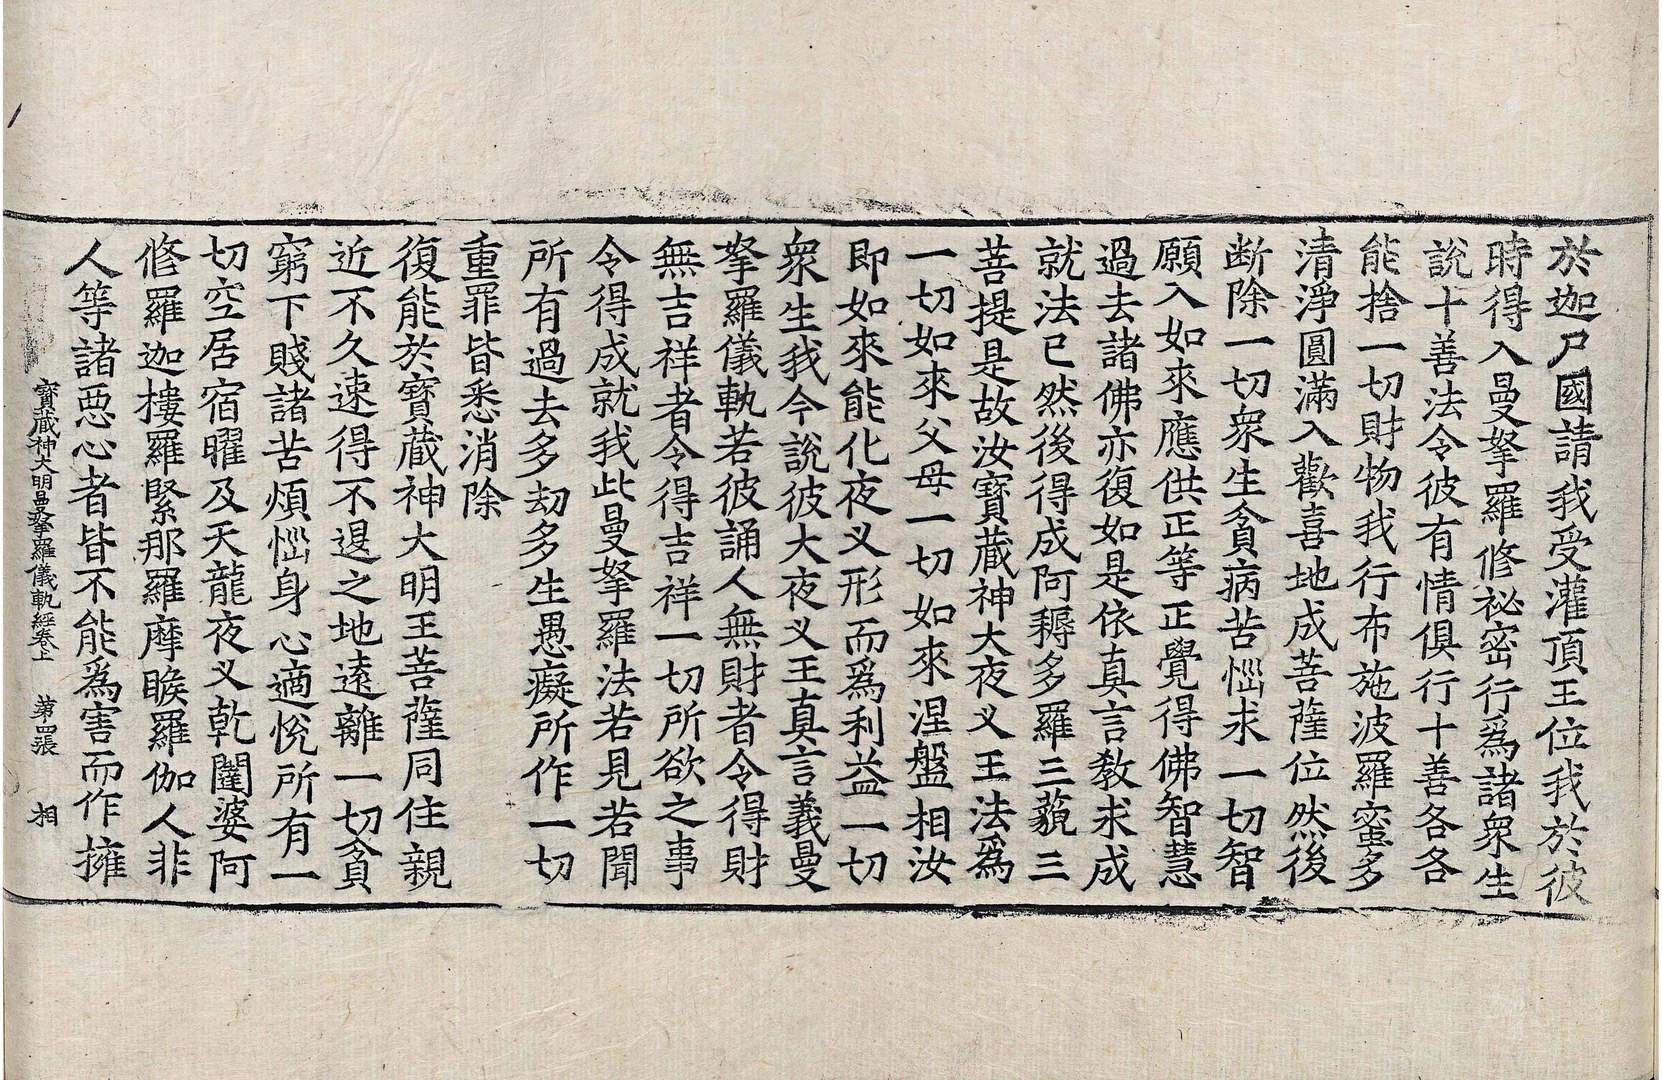 於迦尸國請我受灌頂王位我於彼
時得入曼拏羅修祕密行為諸衆生
說十善法令彼有情俱行十善各各
能捨一切財物我行布施波羅蜜多
清淨圓滿入歡喜地成菩薩位然後
断除一切衆生貪病苦惱求一切智
願入如來應供正等正覺得佛智慧
過去諸佛亦復如是依真言教求成
就法已然後得成阿耨多羅三藐三
菩提是故汝寶藏神大夜叉王法為
一切如來父母一切如來涅盤相汝
即如來能化夜叉形而為利益一切
衆生我今說彼大夜叉王真言義曼
拏羅儀軌若彼誦人無財者令得財
無吉祥者令得吉祥一切所欲之事
令得成就我此曼拏羅法若見若聞
所有過去多劫多生愚癡所作一切
重罪皆悉消除
復能於寶藏神大明王菩薩同住親
近不久速得不退之地遠離一切貪
窮下賤諸苦煩惱身心適悅所有一
切空居宿曜及天龍夜叉乾闥婆阿
修羅迦樓羅緊那羅摩睺羅伽人非
人等諸惡心者皆不能為害而作擁
寶藏神大明曼拏羅儀軌經卷上 第四張 相